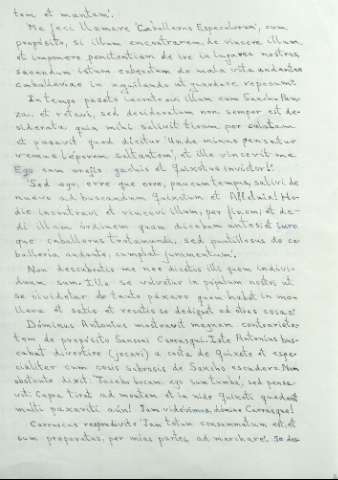 tom et mantam'.
Me feci llamare 'Caballerus Especulorum', cum
propósito, si illum encontrarem, de vincere illum
et imponere penitentiam de ire in lugares nostros,
sacandum istum cabezotam de mala vita andantes
caballerias in aquilando et guardare reposum'.
In tempo pasato incontravi illum cum Sancho Pan-
za, et retavi, sed desideratum non semper est de-
siderata, quia mihi salivit tirum per culatam
et pasavit quod dicitur 'Unde minus pensatur
vemus léporem saltantem', et ille vincevit me.
Ego sum et Quixotus invictor!'
'Sed ago, erre que erre, paucum tempus, salivi de
nuevo ad buscandum Quixotum et Alleluia! Ho-
die incontravi et vincevi illum, per fin, et de-
di illum ordinem quam dicebam antes; et juro
que caballerus tratamundi, sed puntillosus de ca-
balleria andante, cumplat juramentum'.
Non descubratis me nec dicatis illi quem indivi-
duum sum. Ille se volvetur in populum nostrum et
se olvidetur de tanto páxaro quem habet in mon-
llera et satis et recatis se dediquet ad otras cosas'.
Dóminus Antonius mostravit magnam contrarieta-
tem de propósito Sansoni Carrasqui. Iste Antonius bus-
cabat divertire (jocari) a costa de Quixote et espe-
cialiter cum cosis Sancho escudero. Non
obstante dixit: 'Tacebo bocam: ego sum tumba', sed pensa-
vit: Capra tirat ad montem et in nido Quixoti quedant
multi paxariti aún! Jam vidévimus, dómine Carrasque!
Carrascus respondivit: 'Jam totum consummatum est, et
sum preparatus, per mias partes, ad marchare'. Se des-